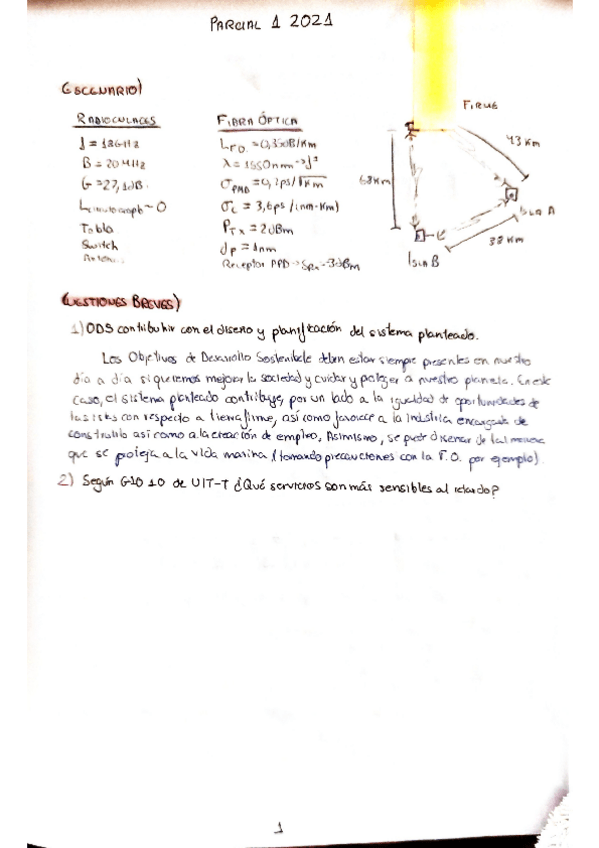 PARCIAL 1 2021
ESCENARIO)
RADIOENLACES
f = 18GHz
B = 20 MHz
G = 27,1dB
Tabla
Switch
FIBRA ÓPTICA
L F.O. = 0,35dB/Km
λ = 1550nm
σ PMD = 0,2ps/√Km
σc = 3,6ps/(nm·Km)
PTx = 2dBm
Receptor
FIRME
43 Km
68Km
ISLA A
38 Km
ISLA B
CUESTIONES BREVES)
1) ODS contribuhir con el diseno y planificación del sistema planteado.
Los Objetivos de Desarrollo Sostenible deben estar siempre presentes en nuestro
día a día si queremos mejorar la sociedad y cuidar y proteger a nuestro planeta. En este
caso, el sistema planteado contribuye, por un lado a la igualdad de oportunidades de
las islas con respecto a tierra firme, así como favorece a la industria encargada de
construirlo así como a la creación de empleo, Asimismo, se puede disenar de tal manera
que se proteja a la vida marina (tomando precauciones con la F.O. por ejemplo).
2) Según G1010 de UIT-T ¿Qué servicios son más sensibles al retardo?
1